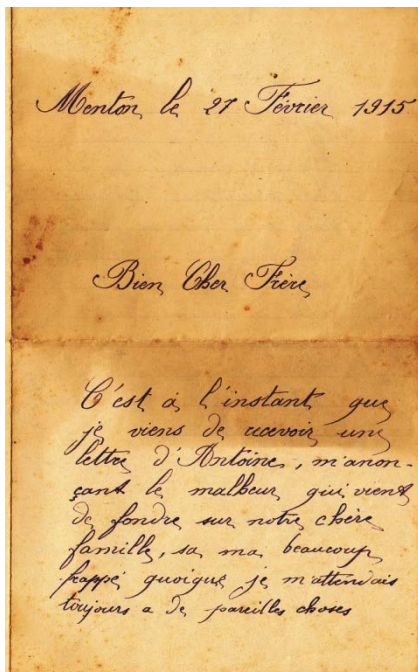 Menton le 27 Février 1915
Bien Cher Frère
C'est à l'instant que
je viens de recevoir une
lettre d'Antoine, m'anon-
çant le malheur qui vient
de fondre sur notre chère
famille, sa ma beaucoup
frappé quoique je m'attendais
toujours a de pareilles choses